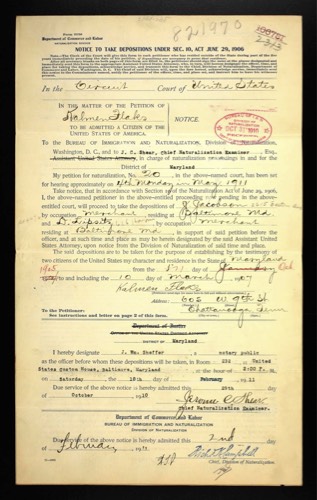 821970
Department of Commerce and Labor
NOTICE TO TAKE DEPOSITIONS UNDER SEC. 10, ACT JUNE 29, 1906
In the Circuit Court of United States
IN THE MATTER OF THE PETITION OF
Kalmen Flaks
TO BE ADMITTED A CITIZEN OF THE
UNITED STATES OF AMERICA.
NOTICE.
To BUREAU OF IMMIGRATION AND NATURALIZATION, Division of Naturalization,
Washington, D. C., and to J. C. Shear, Chief Naturalization Examiner,
Assistant United States Attorney, in charge of naturalization proceedings in and for the
District of Maryland
My petition for naturalization, No. 320, in the above-named court, has been set
for hearing approximately on 4th Monday in May 1911
Take notice, that in accordance with Section 10 of the Naturalization Act of June 29, 1906,
I, the above-named petitioner in the above-entitled proceeding now pending in the above-
entitled court, will proceed to take the depositions of J. Jacobson
by occupation, merchant, residing at Baltimore Md
and D.
by occupation, merchant
residing at Baltimore Md, in support of said petition before an
officer, and at such time and place as may be herein designated by the said Assistant United
States Attorney, upon notice from the Division of Naturalization of said time and place.
The depositions are to be taken for the purpose of establishing by the testimony of
two citizens of the United States my character and residence in the State of Maryland
1905, from the day of
to and including the 10 day of March, 07
Kalmen Flaks
Petitioner.
Address: 605 W 9th St
Chattanooga Tenn
See instructions and letter on page 2 of this form.
Department of Justice
District of Maryland
I hereby designate J. Wm. Shoffer, notary public
as the officer before whom these depositions will be taken, in Room 282 United
States Custom House, Baltimore, Maryland
on Saturday, the 18th day of February, 1911
Due service of the above notice is hereby admitted this 29th day of
October, 1910
Jerome C Shear
Chief Naturalization Examiner.
Department of Commerce and Labor
BUREAU OF IMMIGRATION AND NATURALIZATION
DIVISION OF NATURALIZATION
Due service of the above notice is hereby admitted this 2nd day of
February, 1911
Richd K Campbell
Chief, Division of Naturalization.